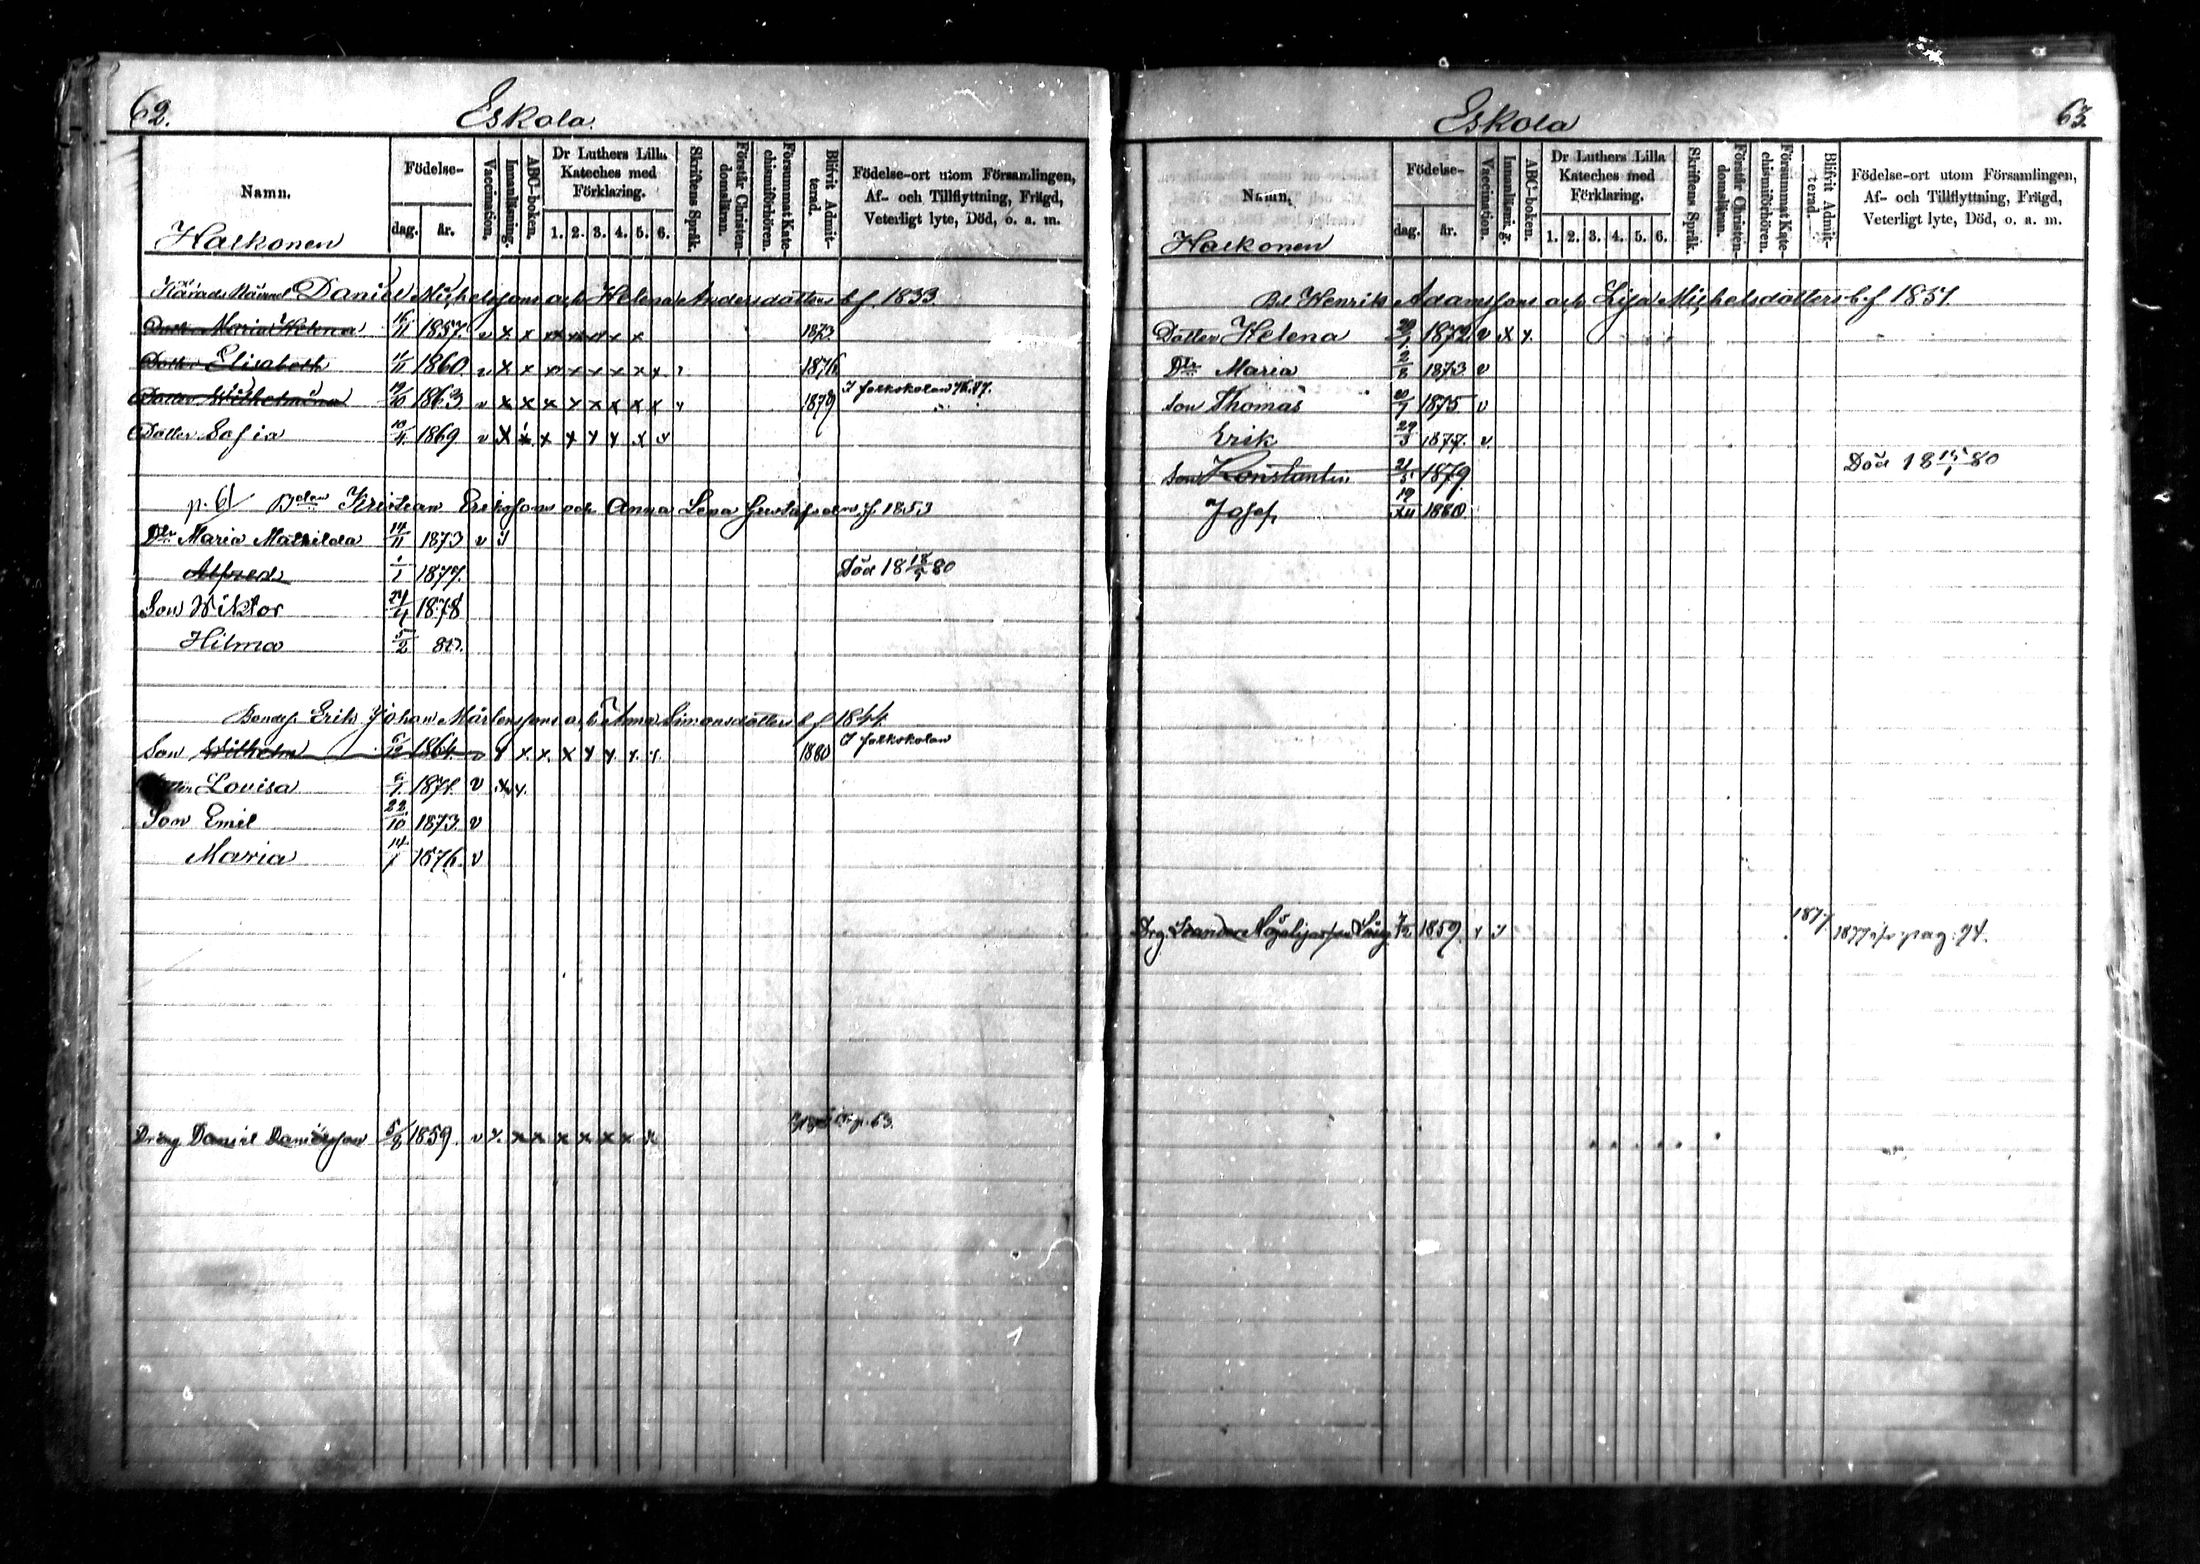 62.
Eskola.
Namn.
Födelse-
dag.
år.
Vaccination.
Innanläsning.
ABC-boken.
Dr Luthers Lilla
Kateches med
Förklaring.
1. 2. 3. 4. 5. 6.
Skriftens Språk.
Förstår Christen-
domsläran.
Försummat Kate-
chismiförhören.
Blifvit Admit-
terad.
Födelse-ort utom Församlingen,
Af- och Tillflyttning, Frägd,
Veterligt lyte, Död, o. a. m.
Halkonen
Daniel Michelssons och Helena Andersdotters b. f. 1833.
Dott. Maria Helena 16/11 1857. v x x x x x x x x 1873.
Dotter Elisabeth 1860 v x x x x x x x x 1876
Dotter Wilhelmina 19/10 1863 v x x x x x x x x 1879 I folkskolan 76.77.
Dotter Sofia 10/4 1869 v x x x x x x x
p. 61 Bdn Kristian Erikssons och Anna Lena f. 1853
Dtr Maria Mathilda 14/11 1873 v
Alfred 1/1 1877. Död 18 18/5 80
Son Wiktor 24/4 1878
Hilma 5/2 80.
Bondes. Erik Johan Mårtenssons och Anna Simonsdotters b f 1844
Son Wilhelm 6/12 1864 v x x x x x x x x 1880 I folkskolan
Louisa 1871. v x x.
Son Emil 22/10 1873. v
Maria 14/1 1876. v
Dräng Daniel Danielsson 5/8 1859. v x. x x x x x x x p. 63.
Eskola
63.
Namn.
Födelse-
dag.
år.
Vaccination.
Innanläsning.
ABC-boken.
Dr Luthers Lilla
Kateches med
Förklaring.
1. 2. 3. 4. 5. 6.
Skriftens Språk.
Förstår Christen-
domsläran.
Försummat Kate-
chismiförhören.
Blifvit Admit-
terad.
Födelse-ort utom Församlingen,
Af- och Tillflyttning, Frägd,
Veterligt lyte, Död, o. a. m.
Halkonen
Bd. Henrik Adamssons och Lisa Michelsdotters b. f 1837.
Dotter Helena 20/1 1872 v x x.
Dtr Maria 2/8 1873 v
Son Thomas 20/7 1875 v
Erik 29/3 1877. v
Son Konstantin 21/5 1879. Död 18 15/1 80
Josef 19/XII 1880
Drg. 7/2 1859. 1877. 1877 pag. 94.